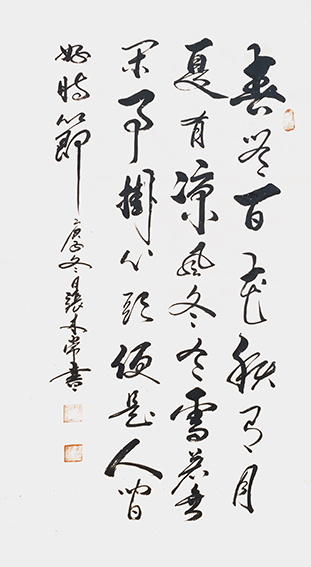 春有百花秋有月
夏有凉風冬有雪若無
閑事掛心頭便是人間
好時節 庚冬日張木常書